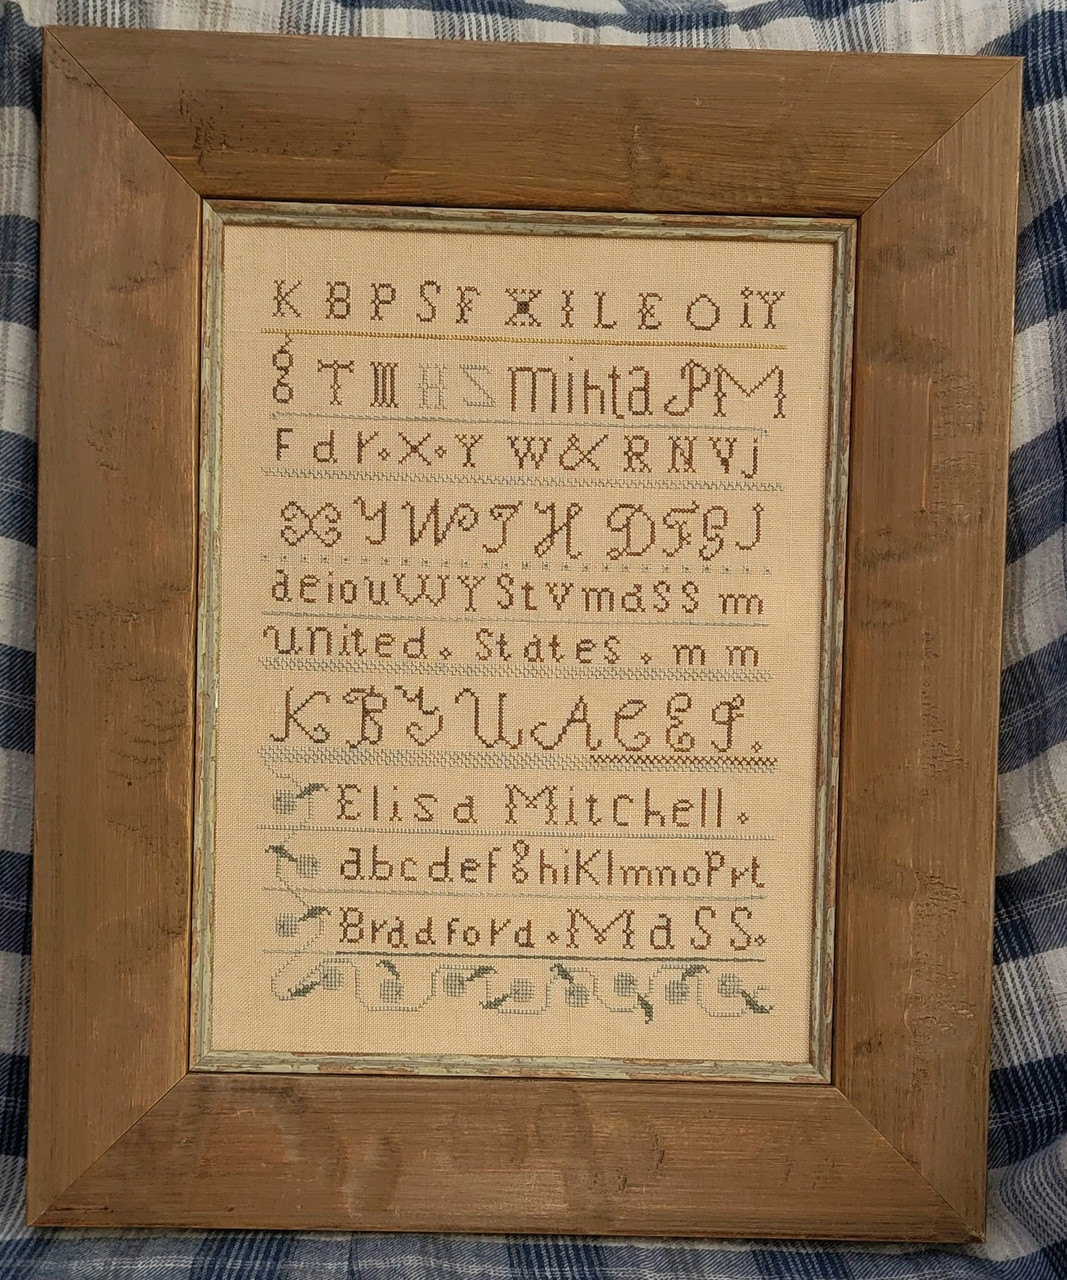 K B P S F X I L E O i Y
g T I H S m i h t a P M
F d r . X . Y W & R N V j
Y W P T H D F G J
a e i o u W Y S t v m a s s m
united . States . m m
K B Y U A C E P .
Elisa Mitchell .
a b c d e f g h i K l m n o P r t
Bradford . Mass .